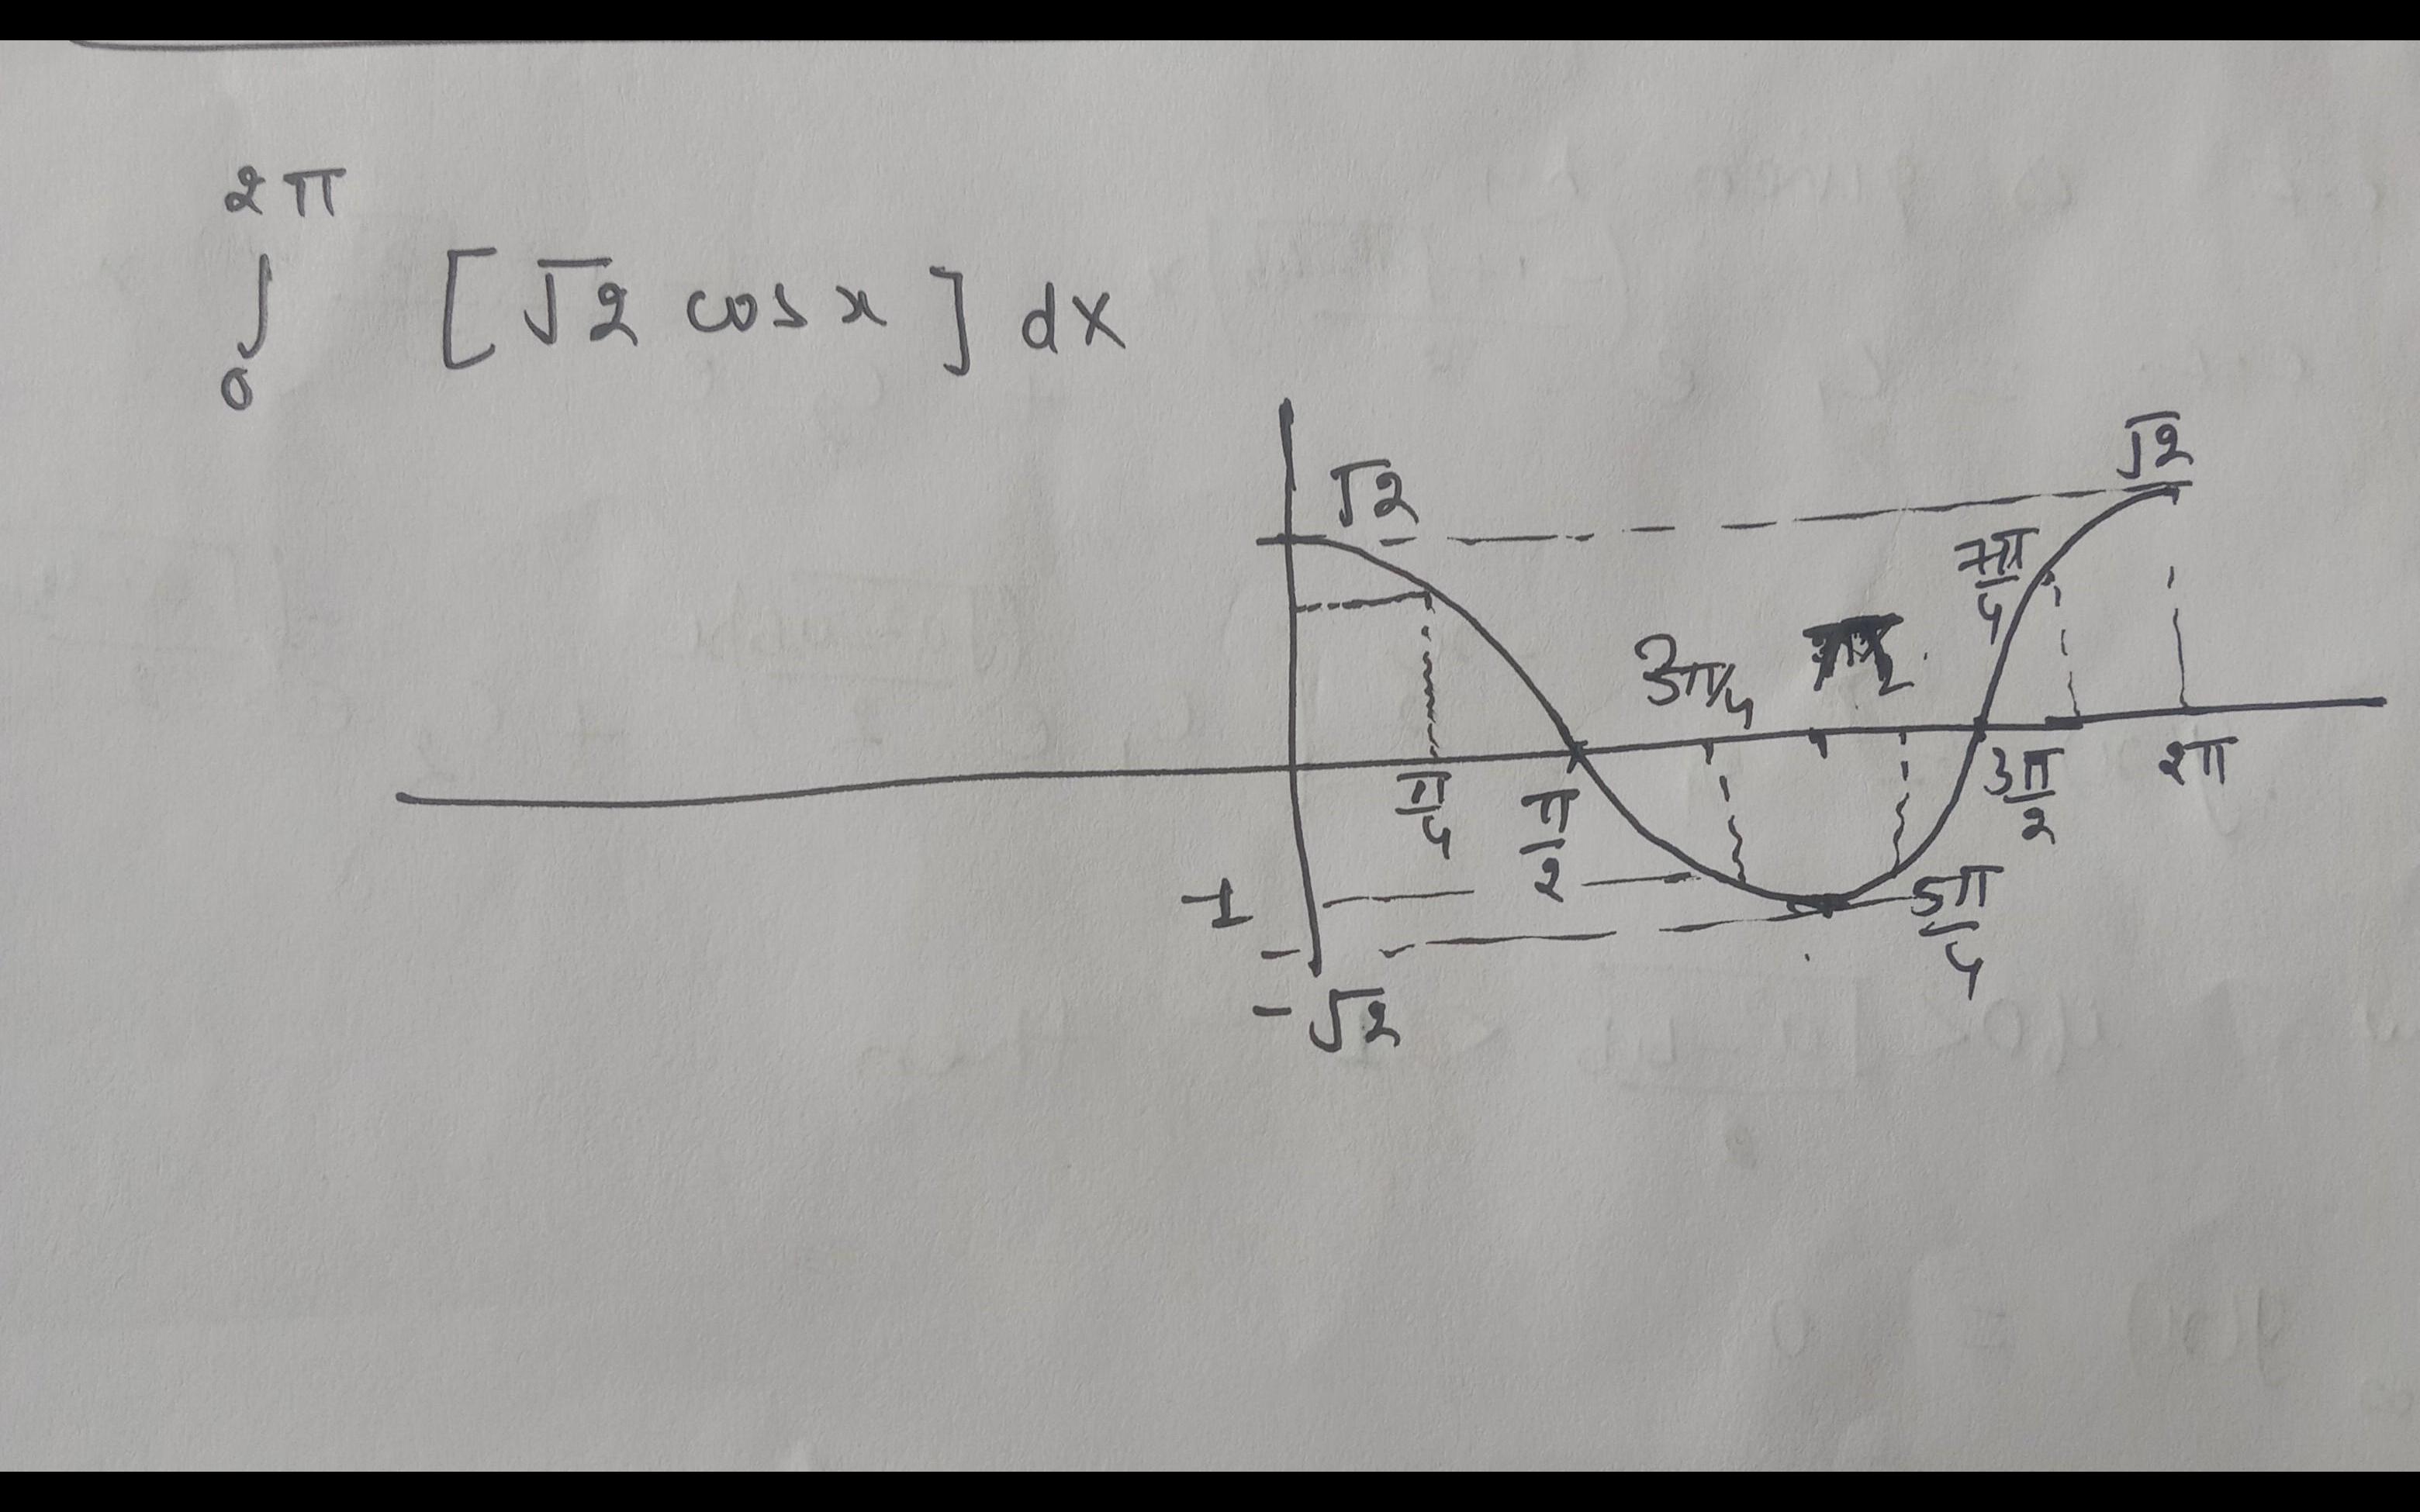 2π
∫ [√2 cos x] dx
0
√2
√2
7π/4
3π/4
π/4
π/2
3π/2
2π
-1
5π/4
-√2